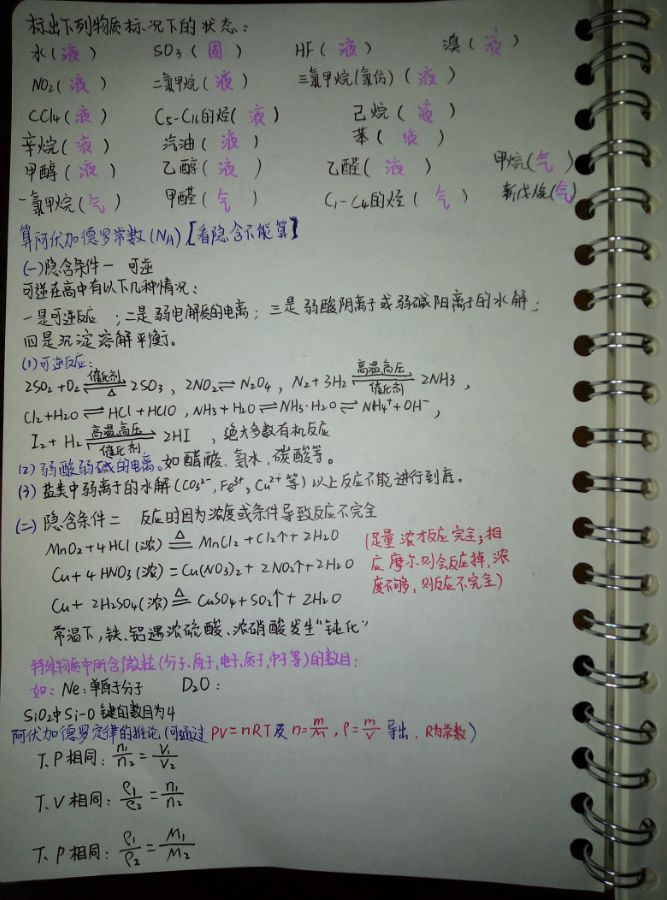 标出下列物质标况下的状态:
水(液) SO3(固) HF(液) 溴(液)
NO2(液) 二氯甲烷(液) 三氯甲烷(氯仿)(液)
CCl4(液) C5-C16的烃(液) 己烷(液)
辛烷(液) 汽油(液) 苯(液)
甲醇(液) 乙醇(液) 乙醛(液) 甲烷(气)
一氯甲烷(气) 甲醛(气) C1-C4的烃(气) 新戊烷(气)
算阿伏加德罗常数(NA)【看隐含不能算】
(一)隐含条件一 可逆
可逆在高中有以下几种情况:
一是可逆反应;二是弱电解质的电离;三是弱酸阴离子或弱碱阳离子的水解;
四是沉淀溶解平衡。
(1)可逆反应:
2SO2+O2⇌(催化剂 △)2SO3、2NO2⇌N2O4、N2+3H2⇌(高温高压 催化剂)2NH3、
Cl2+H2O⇌HCl+HClO、NH3+H2O⇌NH3·H2O⇌NH4⁺+OH⁻、
I2+H2⇌(高温高压 催化剂)2HI、绝大多数有机反应
(2)弱酸弱碱的电离。如醋酸、氨水、碳酸等。
(3)盐类中弱离子的水解(CO3²⁻,Fe³⁺,Cu²⁺等)以上反应不能进行到底。
(二)隐含条件二 反应时因为浓度或条件导致反应不完全
MnO2+4HCl(浓)≜MnCl2+Cl2↑+2H2O (足量浓才反应完全,相
Cu+4HNO3(浓)=Cu(NO3)2+2NO2↑+2H2O 应摩尔则会反应掉,浓
Cu+2H2SO4(浓)≜CuSO4+SO2↑+2H2O 度不够,则反应不完全)
常温下,铁、铝遇浓硫酸、浓硝酸发生"钝化"
特殊物质中所含微粒(分子、原子、电子、质子、中子等)的数目:
如:Ne:单原子分子 D2O:
SiO2中Si-O键的数目为4
阿伏加德罗定律的推论(可通过PV=nRT及n=m/M,ρ=m/V导出、R为常数)
T、P相同:n1/n2=V1/V2
T、V相同:ρ1/ρ2=n1/n2
T、P相同:ρ1/ρ2=M1/M2